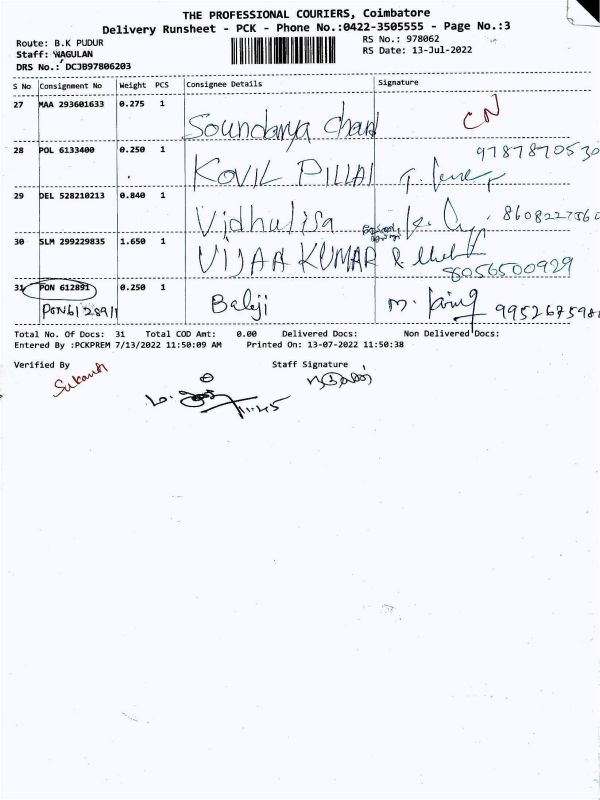 THE PROFESSIONAL COURIERS, Coimbatore
Delivery Runsheet - PCK - Phone No.:0422-3505555 - Page No.:3
Route: B.K PUDUR RS No.: 978062
Staff: WAGULAN RS Date: 13-Jul-2022
DRS No.: DCJB97806203
S No Consignment No Weight PCS Consignee Details Signature
27 MAA 293601633 0.275 1 Soundarya Chand CN
28 POL 6133400 0.250 1 KOVIL PILLAI 9787870530
29 DEL 528210213 0.840 1 Vidhulisa
30 SLM 299229835 1.650 1 VIJAA KUMAR 8056500929
31 PON 612891 0.250 1 Balaji
PON6128911
Total No. Of Docs: 31 Total COD Amt: 0.00 Delivered Docs: Non Delivered Docs:
Entered By :PCKPREM 7/13/2022 11:50:09 AM Printed On: 13-07-2022 11:50:38
Verified By Staff Signature
Sukanth
11:45